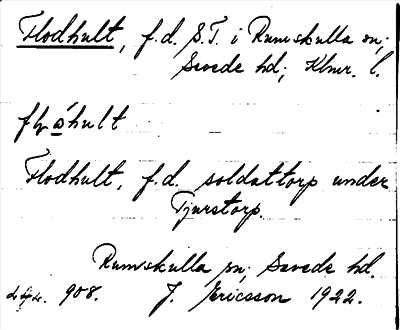 Flodhult, f.d. S.T. i Rumskulla sn;
Sevede hd; Klmr. l.
flɷ́hult
Flodhult, f.d. soldattorp under
Tjurstorp.
Rumskulla sn; Sevede hd.
908. J. Ericsson 1922.